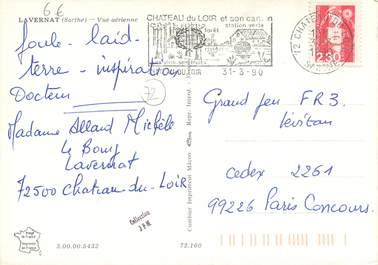 6€
LAVERNAT (Sarthe) - Vue aérienne
foule - laid -
terre - inspiration
Docteur
72
Madame Allard Michèle
Le Bourg
Lavernat
72500 Chateau-du-Loir
CHATEAU du LOIR et son canton
forêt
station verte
31-3-90
2,30
Grand jeu FR3.
Lévitan
cedex 2261
99226 Paris Concours.
Collection
3.00.00.5432
72.160